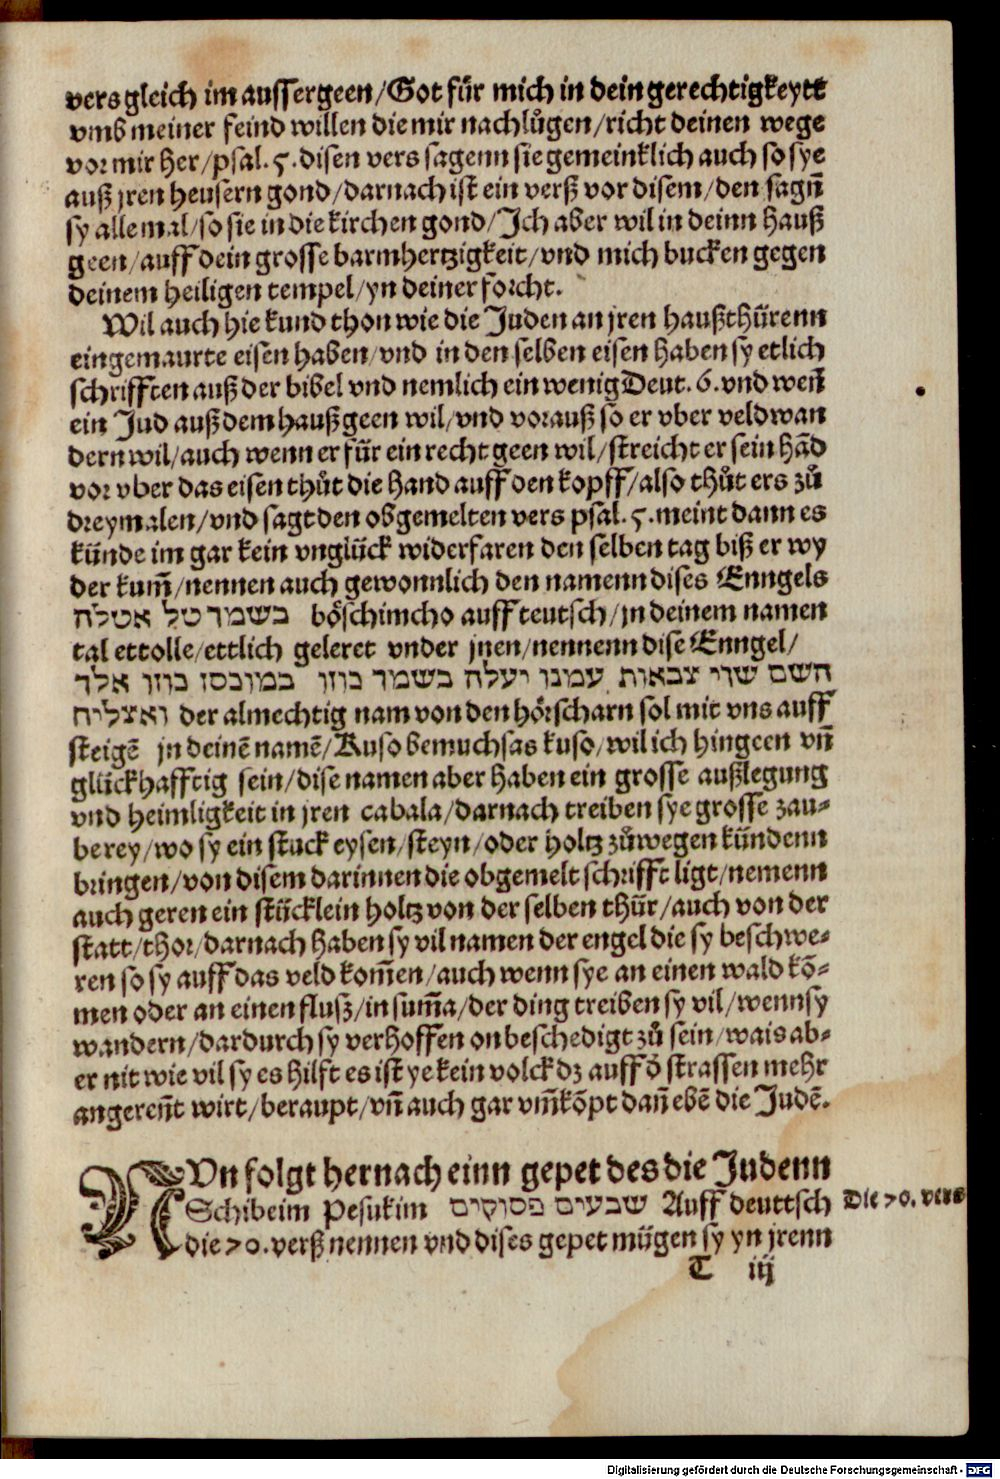 vers gleich im aussergeen/Got für mich in dein gerechtigkeytt
vmb meiner feind willen die mir nachlůgen/richt deinen wege
vor mir her/psal.5.disen vers sagenn sie gemeinklich auch so sye
auß jren heusern gond/darnach ist ein verß vor disem/den sagñ
sy allemal/so sie in die kirchen gond/Ich aber wil in deinn hauß
geen/auff dein grosse barmhertzigkeit/vnd mich bucken gegen
deinem heiligen tempel/yn deiner forcht.
Wil auch hie kund thon wie die Juden an jren haußthürenn
eingemaurte eisen haben/vnd in den selben eisen haben sy etlich
schrifften auß der bibel vnd nemlich ein wenig Deut.6.vnd weñ
ein Jud auß dem hauß geen wil/vnd vorauß so er vber veld wan
dern wil/auch wenn er für ein recht geen wil/streicht er sein hãd
vor vber das eisen thůt die hand auff den kopff/also thůt ers zů
dreymalen/vnd sagt den obgemelten vers psal.5.meint dann es
künde im gar kein vnglück widerfaren den selben tag biß er wy
der kum̃/nennen auch gewonnlich den namenn dises Enngels
בשמך טל אטלה böschimcho auff teutsch/jn deinem namen
tal ettolle/ettlich geleret vnder jnen/nennenn dise Enngel/
השם שדי צבאות עמנו יעלה בשמך כוזו במוכסז כוזו אלך
ואצליח der almechtig nam von den hörscharn sol mit vns auff
steigẽ jn deinẽ namẽ/Kuso bemuchsas kuso/wil ich hingeen vñ
glückhafftig sein/dise namen aber haben ein grosse außlegung
vnd heimligkeit in jren cabala/darnach treiben sye grosse zau-
berey/wo sy ein stuck eysen/steyn/oder holtz zůwegen kündenn
bringen/von disem darinnen die obgemelt schrifft ligt/nemenn
auch geren ein stücklein holtz von der selben thür/auch von der
statt/thor/darnach haben sy vil namen der engel die sy beschwe-
ren so sy auff das veld kom̃en/auch wenn sye an einen wald kõ-
men oder an einen flusz/in sum̃a/der ding treiben sy vil/wenn sy
wandern/dardurch sy verhoffen on beschedigt zů sein/wais ab-
er nit wie vil sy es hilft es ist ye kein volck dz auff d̃ strassen mehr
angereñt wirt/beraupt/vñ auch gar vm̃kõpt dañ ebẽ die Judẽ.
NUn folgt hernach einn gepet des die Judenn
Schibeim Pesukim שבעים פסוקים Auff deuttsch
die 70.verß nennen vnd dises gepet mügen sy yn jrenn
Die 70.vers
T iij
Digitalisierung gefördert durch die Deutsche Forschungsgemeinschaft - DFG